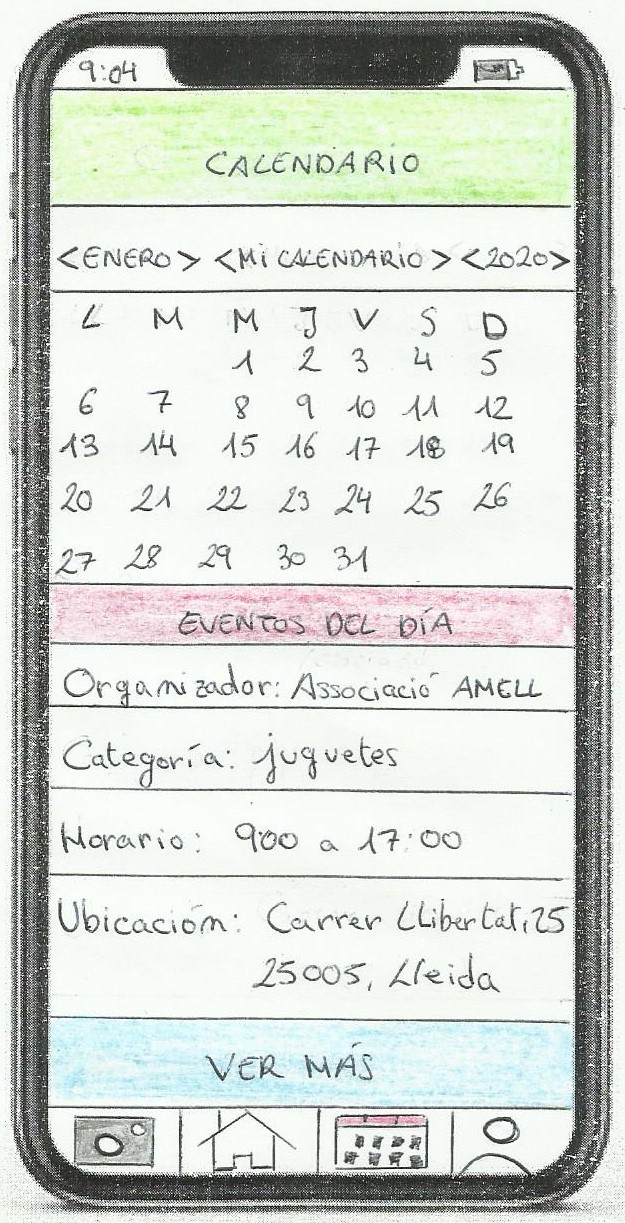 9:04
CALENDARIO
<ENERO> <Mi CALENDARIO> <2020>
L M M J V S D
1 2 3 4 5
6 7 8 9 10 11 12
13 14 15 16 17 18 19
20 21 22 23 24 25 26
27 28 29 30 31
EVENTOS DEL DÍA
Organizador: Associació AMELL
Categoría: juguetes
Horario: 9:00 a 17:00
Ubicación: Carrer LLibertat, 25
25005, Lleida
VER MÁS